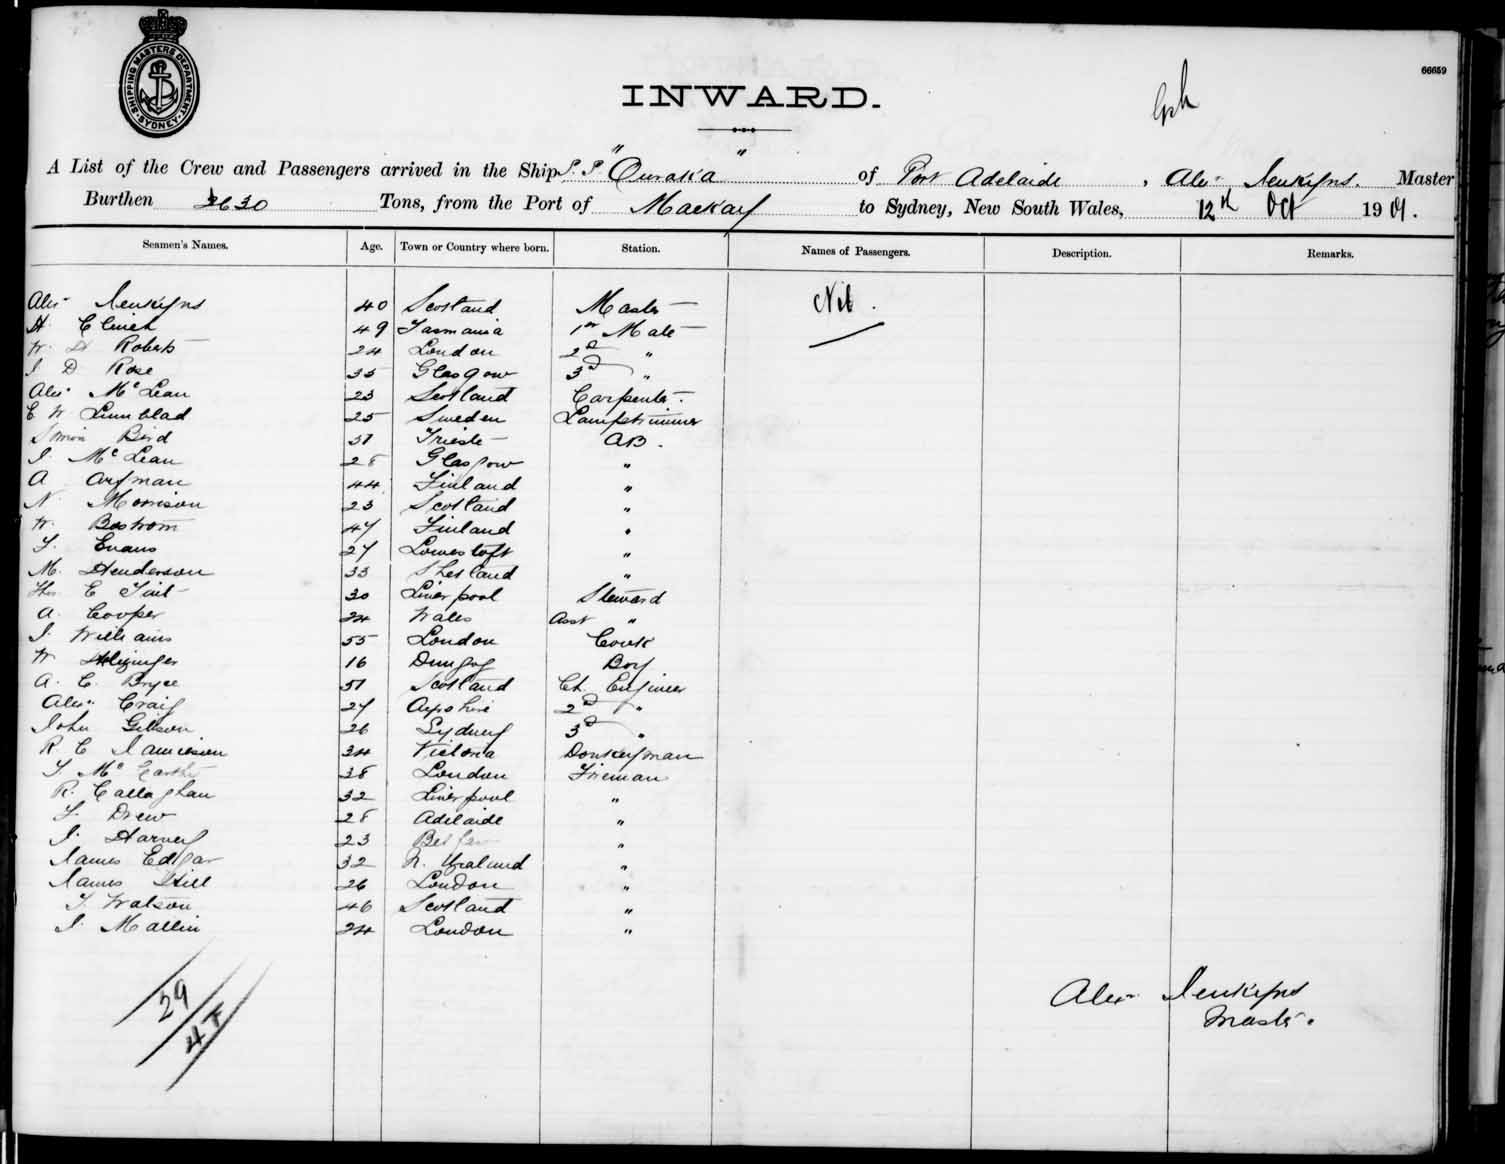 SHIPPING MASTERS DEPARTMENT SYDNEY
66659
INWARD.
A List of the Crew and Passengers arrived in the Ship S.S. "Ouraka" of Port Adelaide, Alexr Master
Burthen 2630 Tons, from the Port of Mackay to Sydney, New South Wales, 12th Oct 1901.
Seamen's Names. Age. Town or Country where born. Station. Names of Passengers. Description. Remarks.
Alexr 40 Scotland Master Nil.
H 49 Tasmania 1st Mate
W. H Roberts 24 London 2d "
J D Rose 35 Glasgow 3d "
Alexr McLean 23 Scotland Carpenter.
E W Limblad 25 Sweden Lamptrimmer
Bird 31 Trieste AB.
J. McLean 28 Glasgow "
A 44 Finland "
N. Morrison 23 Scotland "
W. Bostrom 47 Finland "
Evans 27 Lowestoft "
M. Henderson 33 Shetland "
Thos E Tait 30 Liverpool Steward
A. Cooper 24 Wales Asst "
J. Williams 55 London Cook
W 16 Dungog Boy
A. C. Bryce 51 Scotland Ch. Engineer
Alexr Craig 27 Ayrshire 2d "
John Gibson 26 Sydney 3d "
R. C Jamieson 34 Victoria Donkeyman
38 London Fireman
R. Callaghan 32 Liverpool "
Drew 28 Adelaide "
J. Harvey 23 "
James Edgar 32 N. Zealand "
James Hill 26 London "
T. Watson 46 Scotland "
J. Mallin 24 London "
29
Alexr
Master.